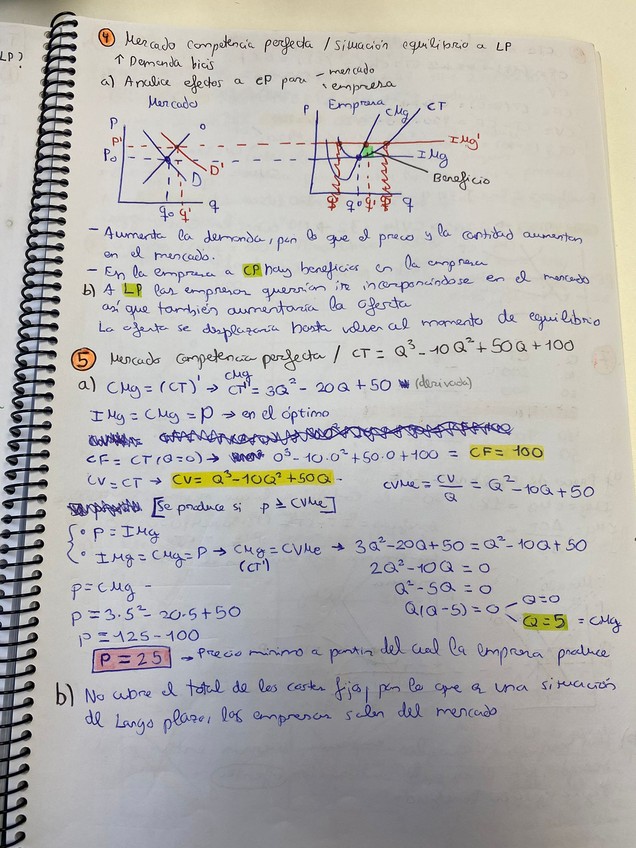 LP?
④ Mercado competencia perfecta / situación equilibrio a LP
↑ Demanda bicis
a) Analice efectos a CP para - mercado
- empresa
Mercado
P
P'
P0
O
D'
D
q0 q' q
Empresa
P
CMg
CT
IMg'
IMg
Beneficio
q0 q' q
- Aumenta la demanda, por lo que el precio y la cantidad aumentan
en el mercado.
- En la empresa a CP hay beneficios en la empresa
b) A LP las empresas querrían ir incorporándose en el mercado
así que también aumentaría la oferta
La oferta se desplazaría hasta volver al momento de equilibrio
⑤ Mercado competencia perfecta / CT = Q³ - 10Q² + 50Q + 100
a) CMg = (CT)' → CT' = 3Q² - 20Q + 50 (derivada)
CMg
IMg = CMg = P → en el óptimo
CF = CT (Q=0) → 0³ - 10·0² + 50·0 + 100 = CF = 100
CV = CT → CV = Q³ - 10Q² + 50Q
CVMe = CV/Q = Q² - 10Q + 50
[Se produce si p ≥ CVMe]
• P = IMg
• IMg = CMg = P → CMg = CVMe → 3Q² - 20Q + 50 = Q² - 10Q + 50
(CT')
2Q² - 10Q = 0
Q² - 5Q = 0
Q(Q-5) = 0
Q=0
Q=5 = CMg
p = CMg -
p = 3·5² - 20·5 + 50
p = 125 - 100
P = 25 → Precio mínimo a partir del cual la empresa produce
b) No cubre el total de los costes fijos, por lo que a una situación
de largo plazo, las empresas salen del mercado